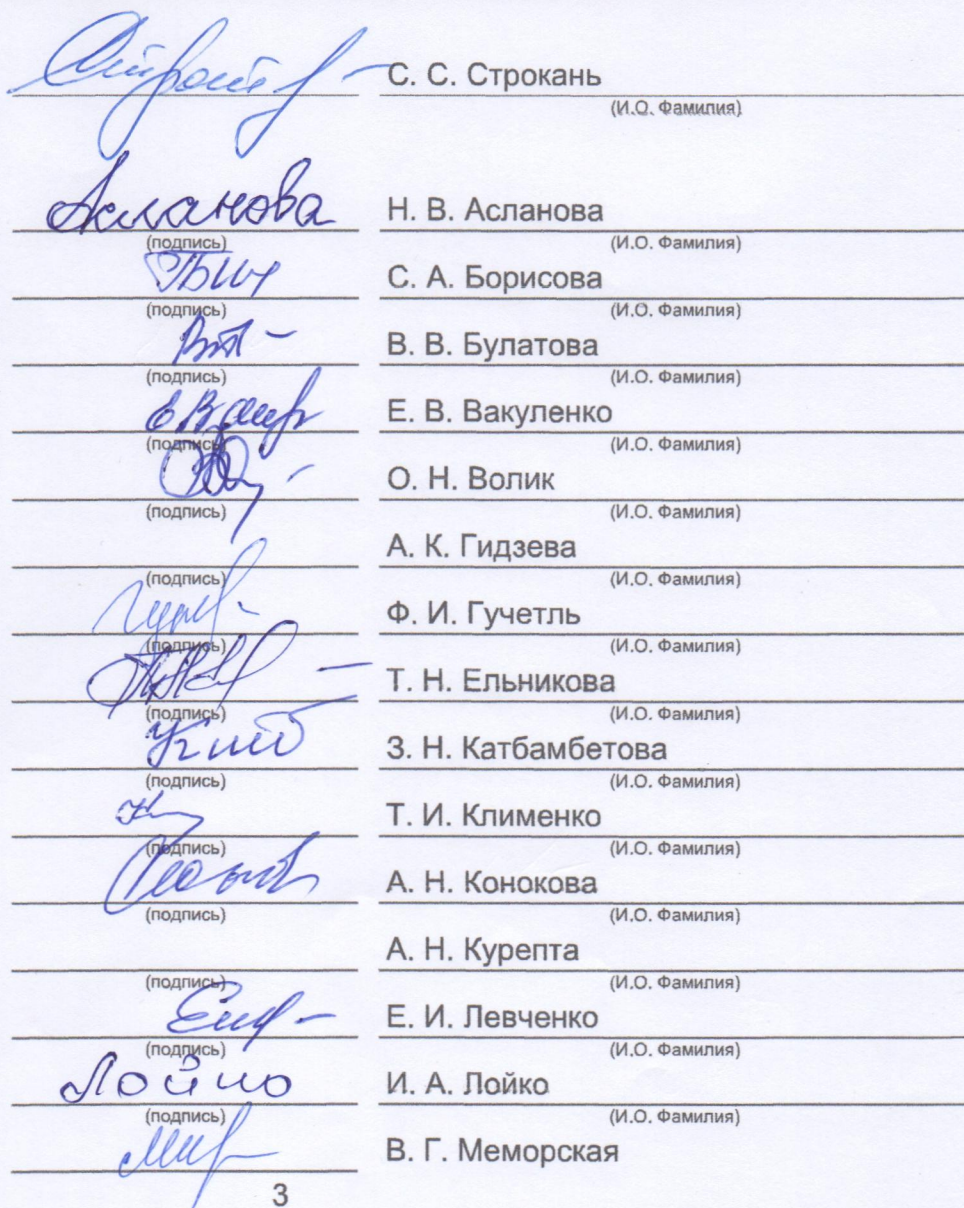 С. С. Строкань
(И.О. Фамилия)
Асланова Н. В. Асланова
(подпись) (И.О. Фамилия)
С. А. Борисова
(подпись) (И.О. Фамилия)
В. В. Булатова
(подпись) (И.О. Фамилия)
Е. В. Вакуленко
(подпись) (И.О. Фамилия)
О. Н. Волик
(подпись) (И.О. Фамилия)
А. К. Гидзева
(подпись) (И.О. Фамилия)
Ф. И. Гучетль
(подпись) (И.О. Фамилия)
Т. Н. Ельникова
(подпись) (И.О. Фамилия)
З. Н. Катбамбетова
(подпись) (И.О. Фамилия)
Т. И. Клименко
(подпись) (И.О. Фамилия)
А. Н. Конокова
(подпись) (И.О. Фамилия)
А. Н. Курепта
(подпись) (И.О. Фамилия)
Е. И. Левченко
(подпись) (И.О. Фамилия)
Лойко И. А. Лойко
(подпись) (И.О. Фамилия)
В. Г. Меморская
3